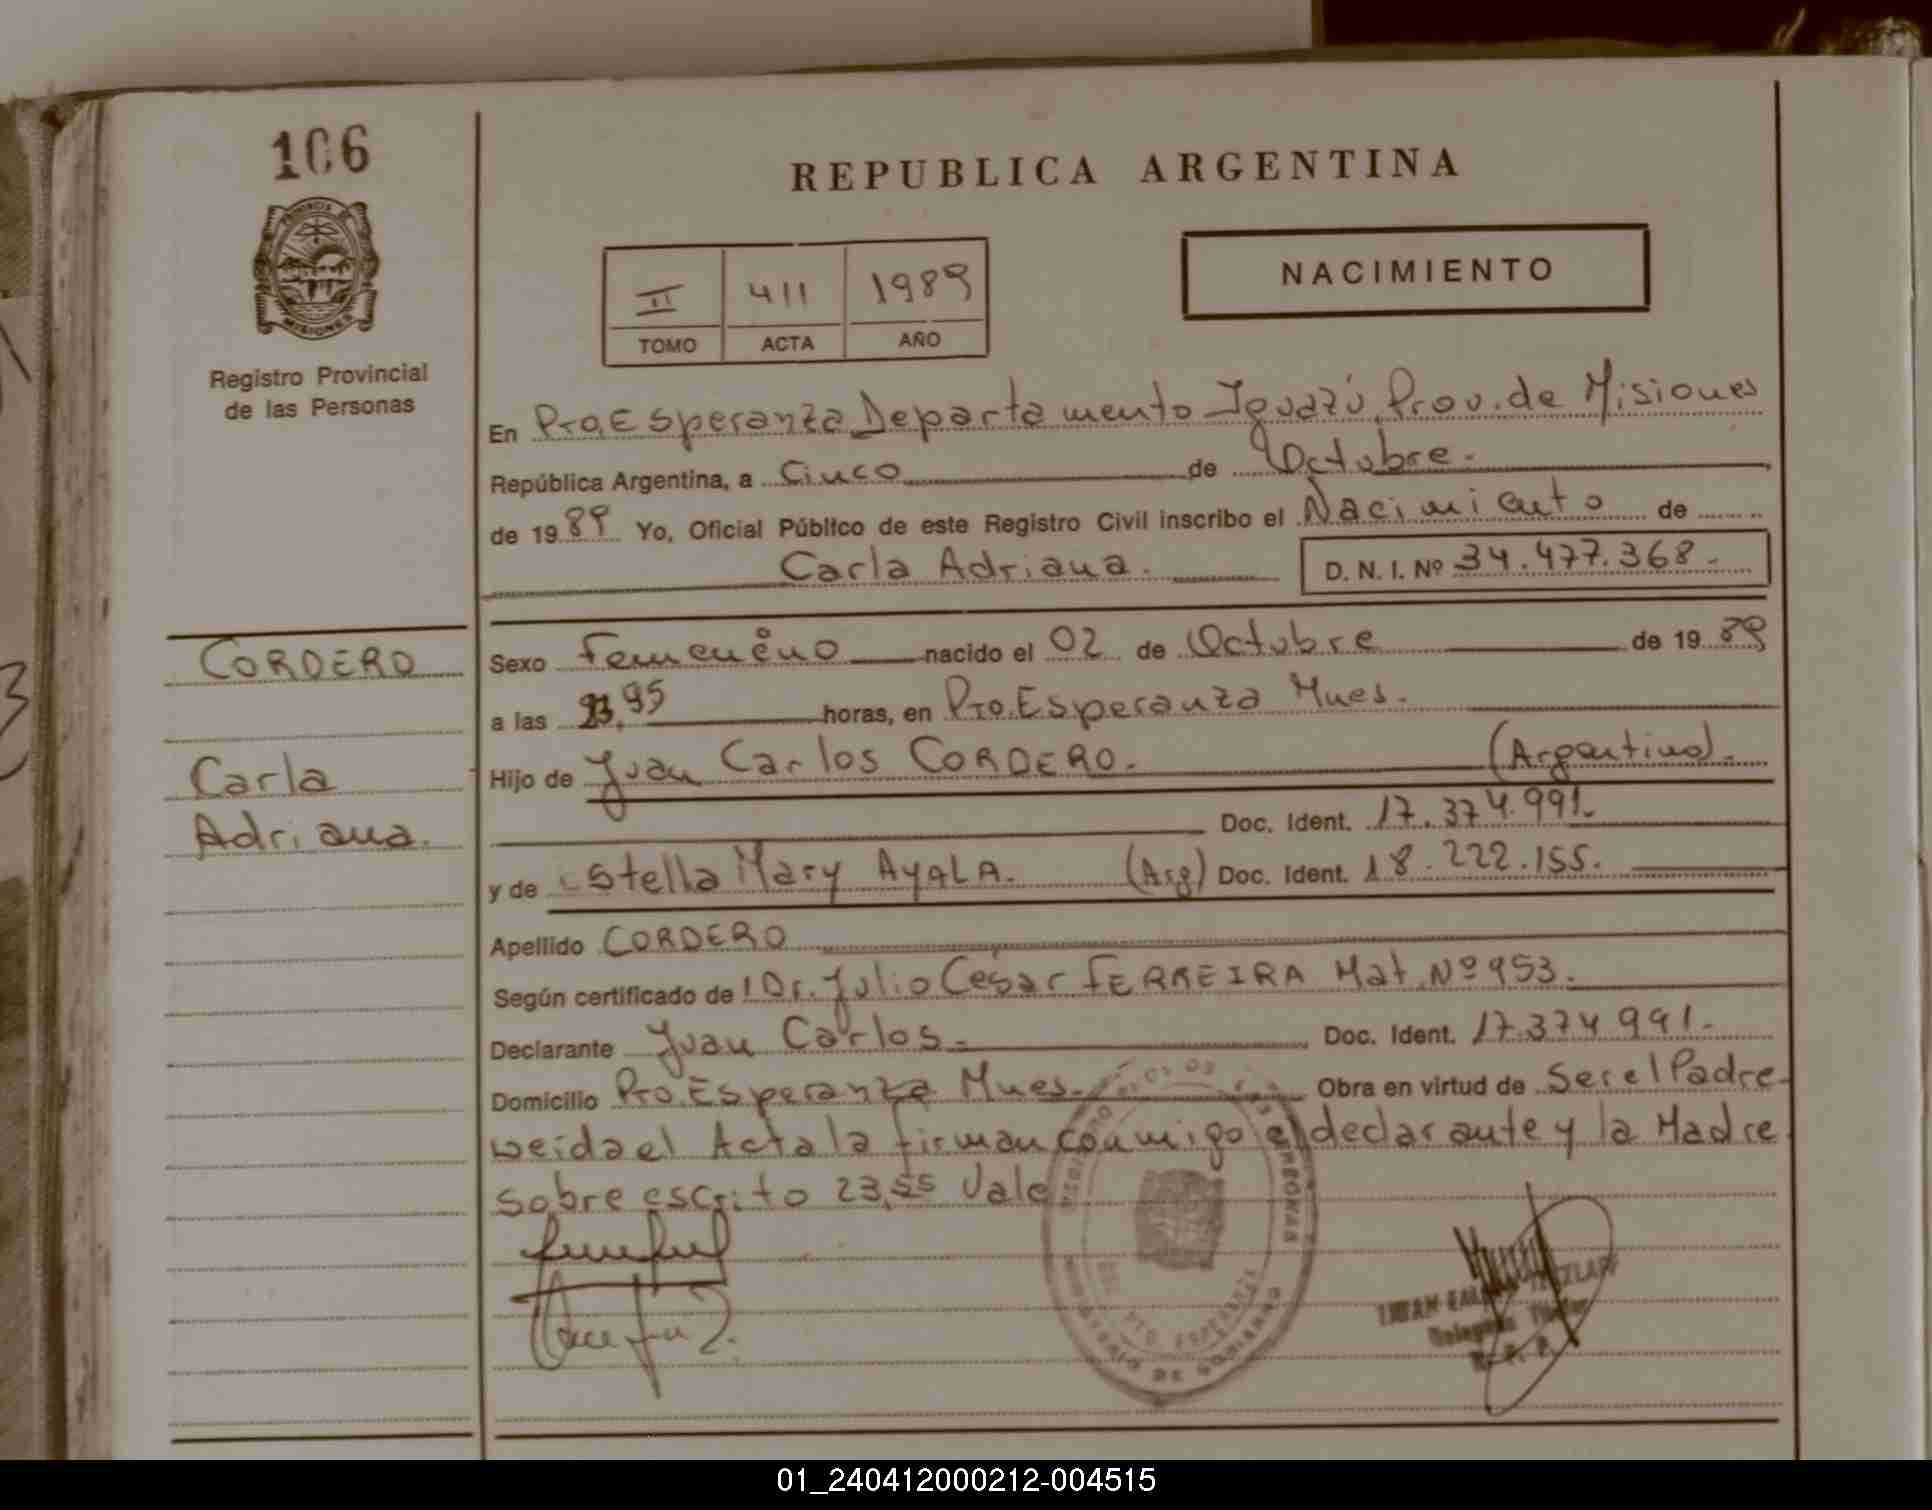 106
REPUBLICA ARGENTINA
PROVINCIA DE
MISIONES
Registro Provincial
de las Personas
II 411 1989
TOMO ACTA AÑO
NACIMIENTO
En Pto. Esperanza Departamento Iguazú, Prov. de Misiones
República Argentina, a Cinco de Octubre.
de 1989 Yo, Oficial Público de este Registro Civil inscribo el Nacimiento de
Carla Adriana. D. N. I. Nº 34.477.368.-
CORDERO
Carla
Adriana.
Sexo Femenino nacido el 02 de Octubre de 1989
a las horas, en Pto. Esperanza Mnes.
Hijo de Juan Carlos CORDERO. (Argentino).
Doc. Ident. 17.374.991.
y de Estella Mary AYALA. (Arg) Doc. Ident. 18.222.155.
Apellido CORDERO
Según certificado de Dr. Julio César FERREIRA Mat. Nº 953.
Declarante Juan Carlos.- Doc. Ident. 17.374 991.-
Domicilio Pto. Esperanza Mnes.- Obra en virtud de Ser el Padre-
Leida el Acta la firman conmigo el declarante y la Madre
Sobre escrito 23,55 Vale
PTO ESPERANZA
MINISTERIO DE GOBIERNO
01_240412000212-004515